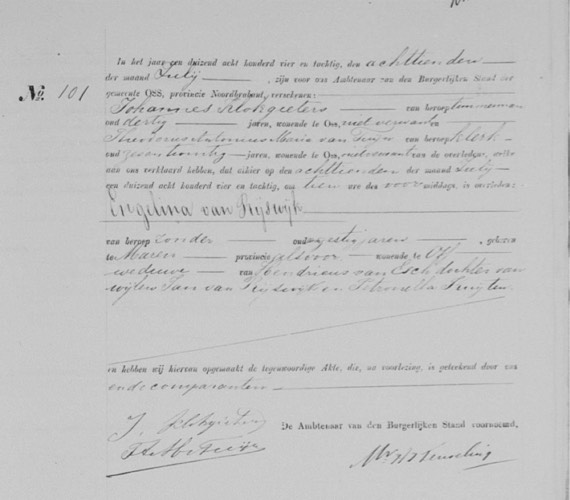 In het jaar een duizend acht honderd vier en tachtig, den achttienden
der maand July, zijn voor ons Ambtenaar van den Burgerlijken Stand der
No. 101 gemeente OSS, provincie Noordbrabant, verschenen:
Johannes Klokgieters van beroep timmerman
oud dertig jaren, wonende te Oss, niet verwant en
Theodorus Antonius Maria van van beroep klerk
oud jaren, wonende te Oss, niet verwant van de overledene, welke
aan ons verklaard hebben, dat alhier op den achttienden der maand July
een duizend acht honderd vier en tachtig, des tien ure des voor middags, is overleden:
Engelina van Rijswijk
van beroep zonder oud jaren, geboren
te Maren provincie als voor wonende te Oss
weduwe van Hendricus van Esch dochter van
wijlen Jan van Rijswijk en Petronella
en hebben wij hiervan opgemaakt de tegenwoordige Akte, die, na voorlezing, is geteekend door ons
en de comparanten
J. Klokgieters De Ambtenaar van den Burgerlijken Stand voornoemd,